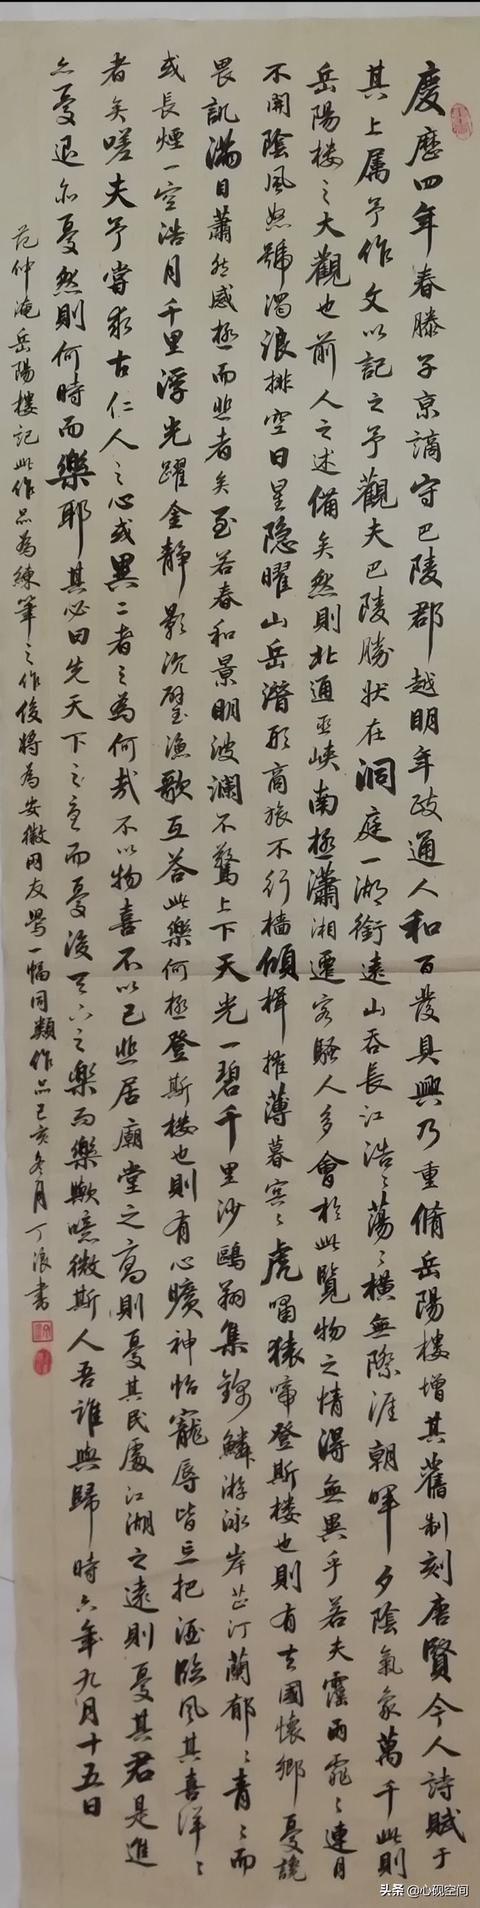 慶歷四年春滕子京謫守巴陵郡越明年政通人和百發具興乃重脩岳陽楼增其舊制刻唐賢今人詩賦于
其上属予作文以記之予觀夫巴陵勝狀在洞庭一湖銜遠山吞長江浩〻蕩〻橫無際涯朝暉夕陰氣象萬千此則
岳陽楼之大觀也前人之述備矣然則北通巫峽南極瀟湘遷客騷人多會於此覽物之情得無異乎若夫霪雨霏〻連月
不開陰風怒號濁浪排空日星隐曜山岳潛形商旅不行檣傾楫摧薄暮冥〻虎嘯猿啼登斯楼也則有去國懷鄉憂讒
畏譏滿目蕭然感極而悲者矣至若春和景明波瀾不驚上下天光一碧千里沙鷗翔集錦鱗游泳岸芷汀蘭郁〻青〻而
或長煙一空浩月千里浮光躍金静影沉璧漁歌互答此樂何極登斯楼也則有心曠神怡寵辱皆忘把酒臨風其喜洋〻
者矣嗟夫予嘗求古仁人之心或異二者之為何哉不以物喜不以己悲居廟堂之高則憂其民處江湖之遠則憂其君是進
亦憂退亦憂然則何時而樂耶其必曰先天下之憂而憂後天下之樂而樂歟噫微斯人吾誰與歸時六年九月十五日
范仲淹岳陽樓記此作品為練筆之作後將為安徽网友写一幅同類作品己亥冬月丁浪書
头条 @心砚空间